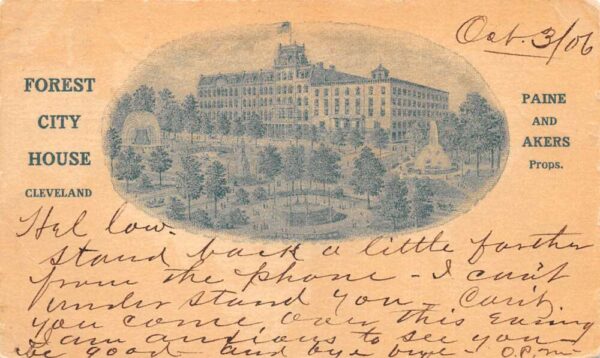 Oct. 3/06
FOREST
CITY
HOUSE
CLEVELAND
PAINE
AND
AKERS
Props.
Hel low.
Stand back a little farther
from the phone - I can't
under stand you - Can't
you come over this evening
I am anxious to see you
be good - and bye bye -